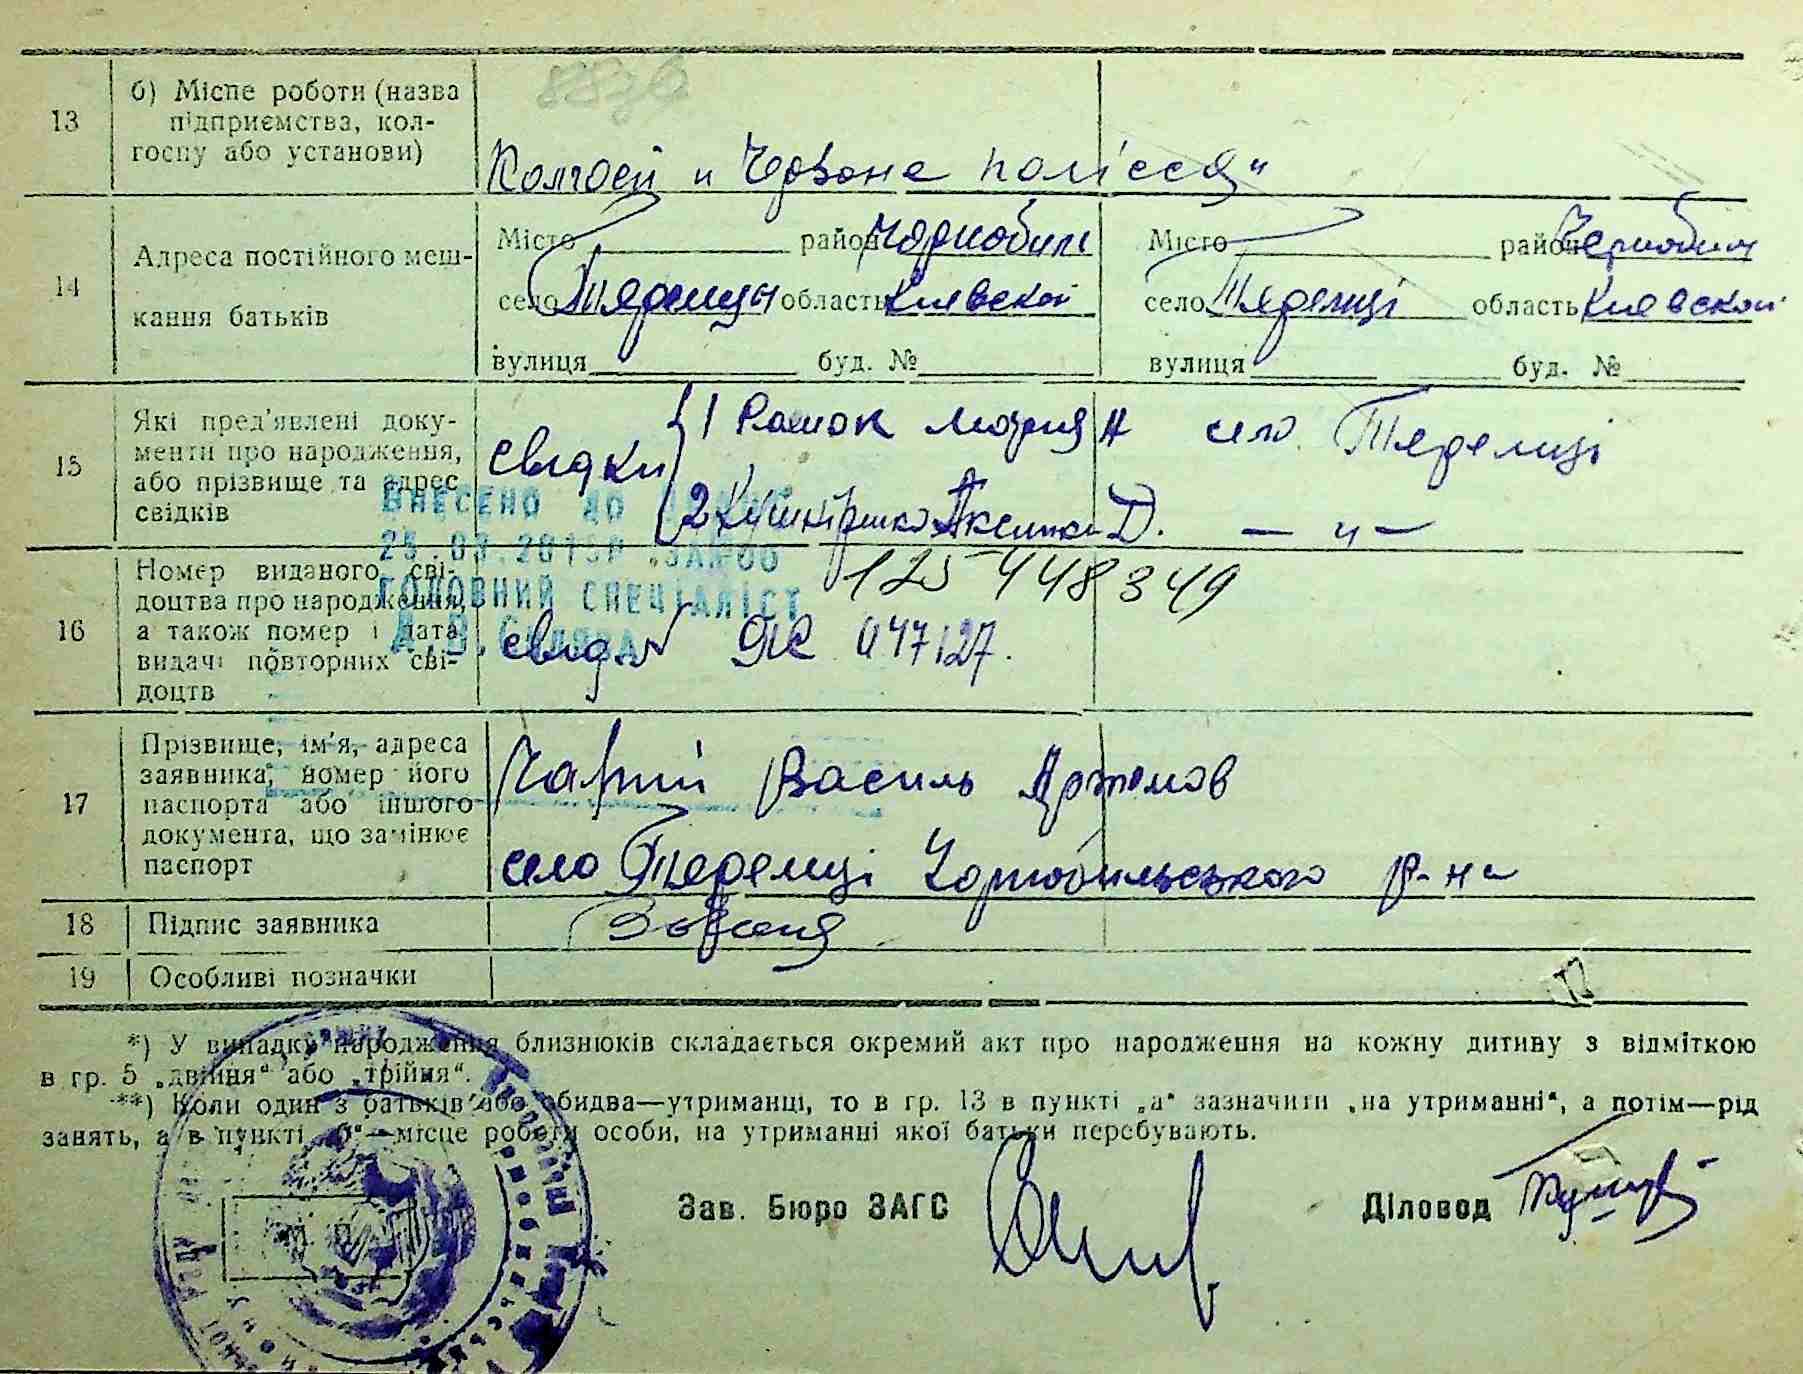 13
б) Місце роботи (назва
підприємства, кол-
госпу або установи)
Колгосп „ Червоне полісся"
14
Адреса постійного меш-
кання батьків
Місто район Чорнобиль
село Теремцы область Киевской
вулиця буд. №
Місто район Чернобыл
село Теремці область Киевской
вулиця буд. №
15
Які пред'явлені доку-
менти про народження,
або прізвище та адрес
свідків
свідки
1 Марія А село Теремці
2 Аксинья Д. — „ —
ВНЕСЕНО ДО
ГОЛОВНИЙ СПЕЦІАЛІСТ
16
Номер виданого сві-
доцтва про народження,
а також номер і дата
видачі повторних сві-
доцтв
125 448349
047127.
17
Прізвище, ім'я, адреса
заявника, номер його
паспорта або іншого
документа, що замінює
паспорт
Василь Артемов
село Теремці Чорнобильського р-на
18
Підпис заявника
19
Особливі позначки
*) У випадку народження близнюків складається окремий акт про народження на кожну дитину з відміткою
в гр. 5 „двійня" або „трійня".
**) Коли один з батьків або обидва—утриманці, то в гр. 13 в пункті „а" зазначити „на утриманні", а потім—рід
занять, а в пункті „б"—місце роботи особи, на утриманні якої батьки перебувають.
Зав. Бюро ЗАГС
Діловод